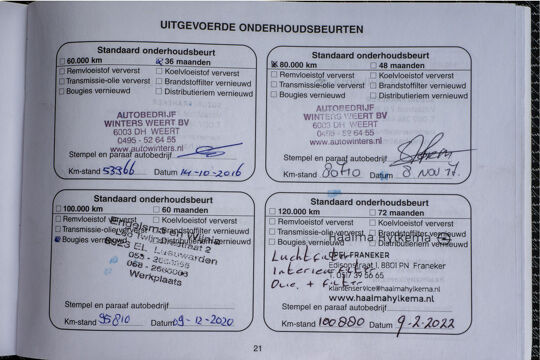 UITGEVOERDE ONDERHOUDSBEURTEN
Standaard onderhoudsbeurt
60.000 km 36 maanden
Remvloeistof ververst Koelvloeistof ververst
Transmissie-olie ververst Brandstoffilter vernieuwd
Bougies vernieuwd Distributieriem vernieuwd
AUTOBEDRIJF
WINTERS WEERT BV
6003 DH WEERT
0495 - 52 64 55
www.autowinters.nl
Stempel en paraaf autobedrijf
Km-stand 53366 Datum 14-10-2016
Standaard onderhoudsbeurt
80.000 km 48 maanden
Remvloeistof ververst Koelvloeistof ververst
Transmissie-olie ververst Brandstoffilter vernieuwd
Bougies vernieuwd Distributieriem vernieuwd
AUTOBEDRIJF
WINTERS WEERT BV
6003 DH WEERT
0495 - 52 64 55
www.autowinters.nl
Stempel en paraaf autobedrijf
Km-stand 80710 Datum 8 NOV 17.
Standaard onderhoudsbeurt
100.000 km 60 maanden
Remvloeistof ververst Koelvloeistof ververst
Transmissie-olie ververst Brandstoffilter vernieuwd
Bougies vernieuwd Distributieriem vernieuwd
Engelsma en Wijnia
EL Leeuwarden
Werkplaats
Stempel en paraaf autobedrijf
Km-stand 95810 Datum 09-12-2020
Standaard onderhoudsbeurt
120.000 km 72 maanden
Remvloeistof ververst Koelvloeistof ververst
Transmissie-olie ververst Brandstoffilter vernieuwd
Bougies vernieuwd Distributieriem vernieuwd
Haaima Hylkema
FRANEKER
Edisonstraat 1, 8801 PN Franeker
T. 0517 39 56 65
klantenservice@haaimahylkema.nl
www.haaimahylkema.nl
Luchtfilter
Interieurfilter
Olie + filter
Stempel en paraaf autobedrijf
Km-stand 100880 Datum 9-2-2022
21